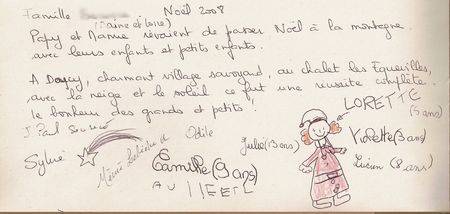 Famille
Noël 2008
(Saine et Loire)
Papy et Mamie rêvaient de passer Noël à la montagne
avec leurs enfants et petits enfants.
A Doucy, charmant village savoyard, au chalet les Equevilles,
avec la neige et le soleil ce fut une réussite complète.
le bonheur des grands et petits !
J. Paul
Odile
Sylvie
Mémé
Camille (9 ans)
Julie (13 ans)
LORETTE
(5 ans)
Violette (3 ans)
Lucien (8 ans)